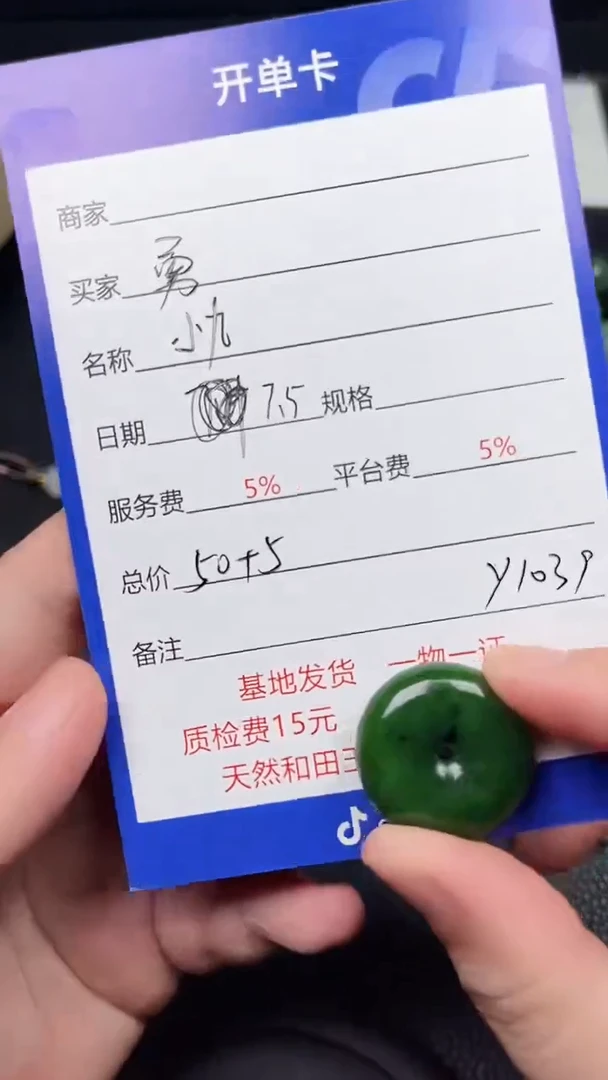 开单卡
商家
买家 勇
名称 小九
日期 7.5 规格
服务费 5% 平台费 5%
总价 50+5
Y1039
备注
基地发货 一物一证
质检费15元
天然和田玉